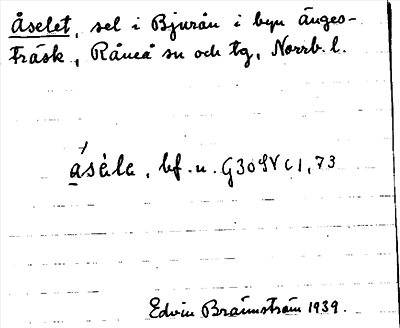 Åselet, sel i Bjurån i byn Änges-
träsk, Råneå sn och tg, Norrb. l.
ásèle, bf. n. G30SVC1,73
Edvin Brännström 1939.